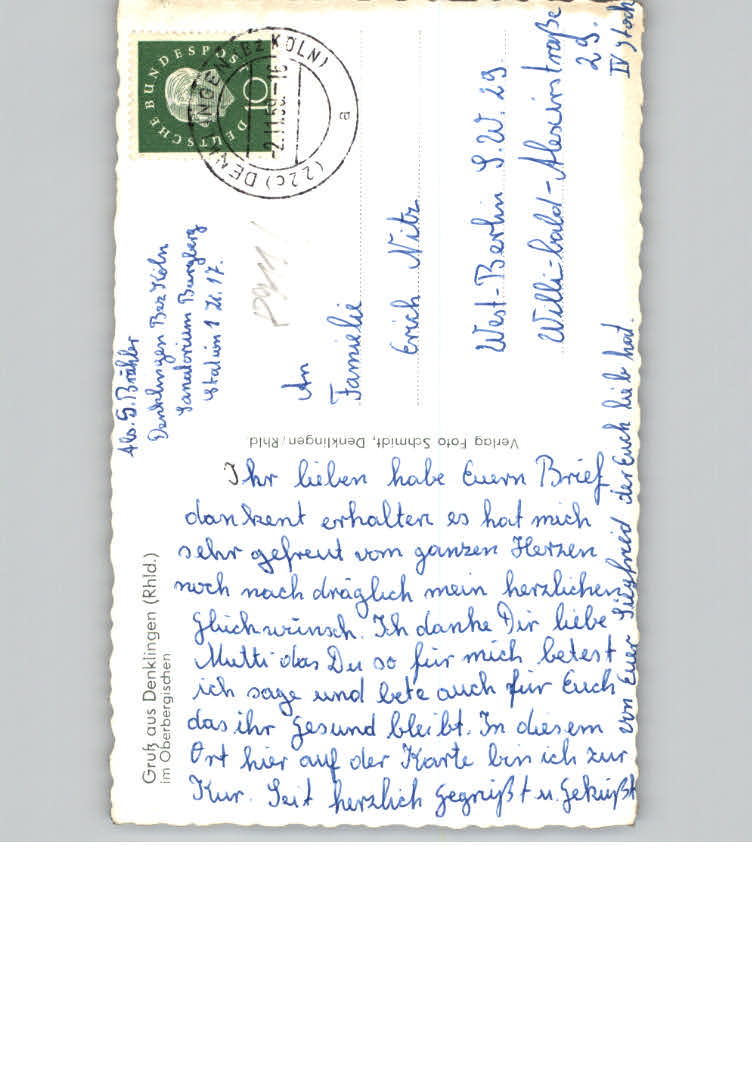 Gruß aus Denklingen (Rhld.)
im Oberbergischen
Ihr lieben habe Euern Brief
dankent erhalten es hat mich
sehr gefreut vom ganzen Herzen
noch nach dräglich mein herzlichen
Glückwünsch. Ich danke Dir liebe
Mutti das Du so für mich betest
ich sage und bete auch für Euch
das ihr gesund bleibt. In diesem
Ort hier auf der Karte bin ich zur
Kur. Seit herzlich gegrüßt u. geküßt
von Euer Siegfried der Euch lieb hat.
Verlag Foto Schmidt, Denklingen/Rhld.
Abs. S. Brähler
Denklingen Bez Köln
Sanatorium Burgberg
Station 1 Zi. 17.
DEUTSCHE BUNDESPOST
10
(22c) DENKLINGEN (BZ KÖLN)
-2.11.59.-16
a
An
Familie
Erich Nitz
West-Berlin S.W. 29.
Willi-bald-Alexinstraße
29.
IV Stock